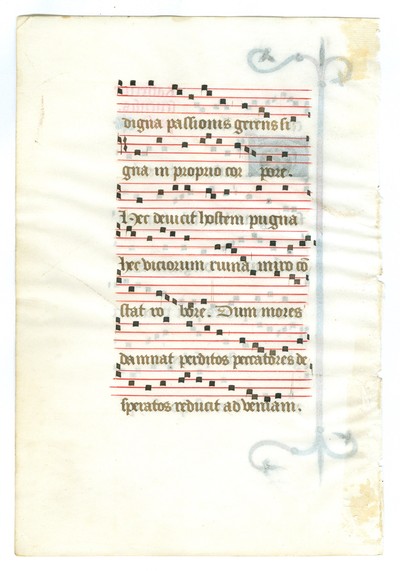 digna passionis gerens si
gna in proprio cor pore.
Hec deuicit hostem pugna
hec viciorum ruina miro cō
stat ro bore. Dum mores
damnat perditos peccatores de
speratos reducit ad veniam.